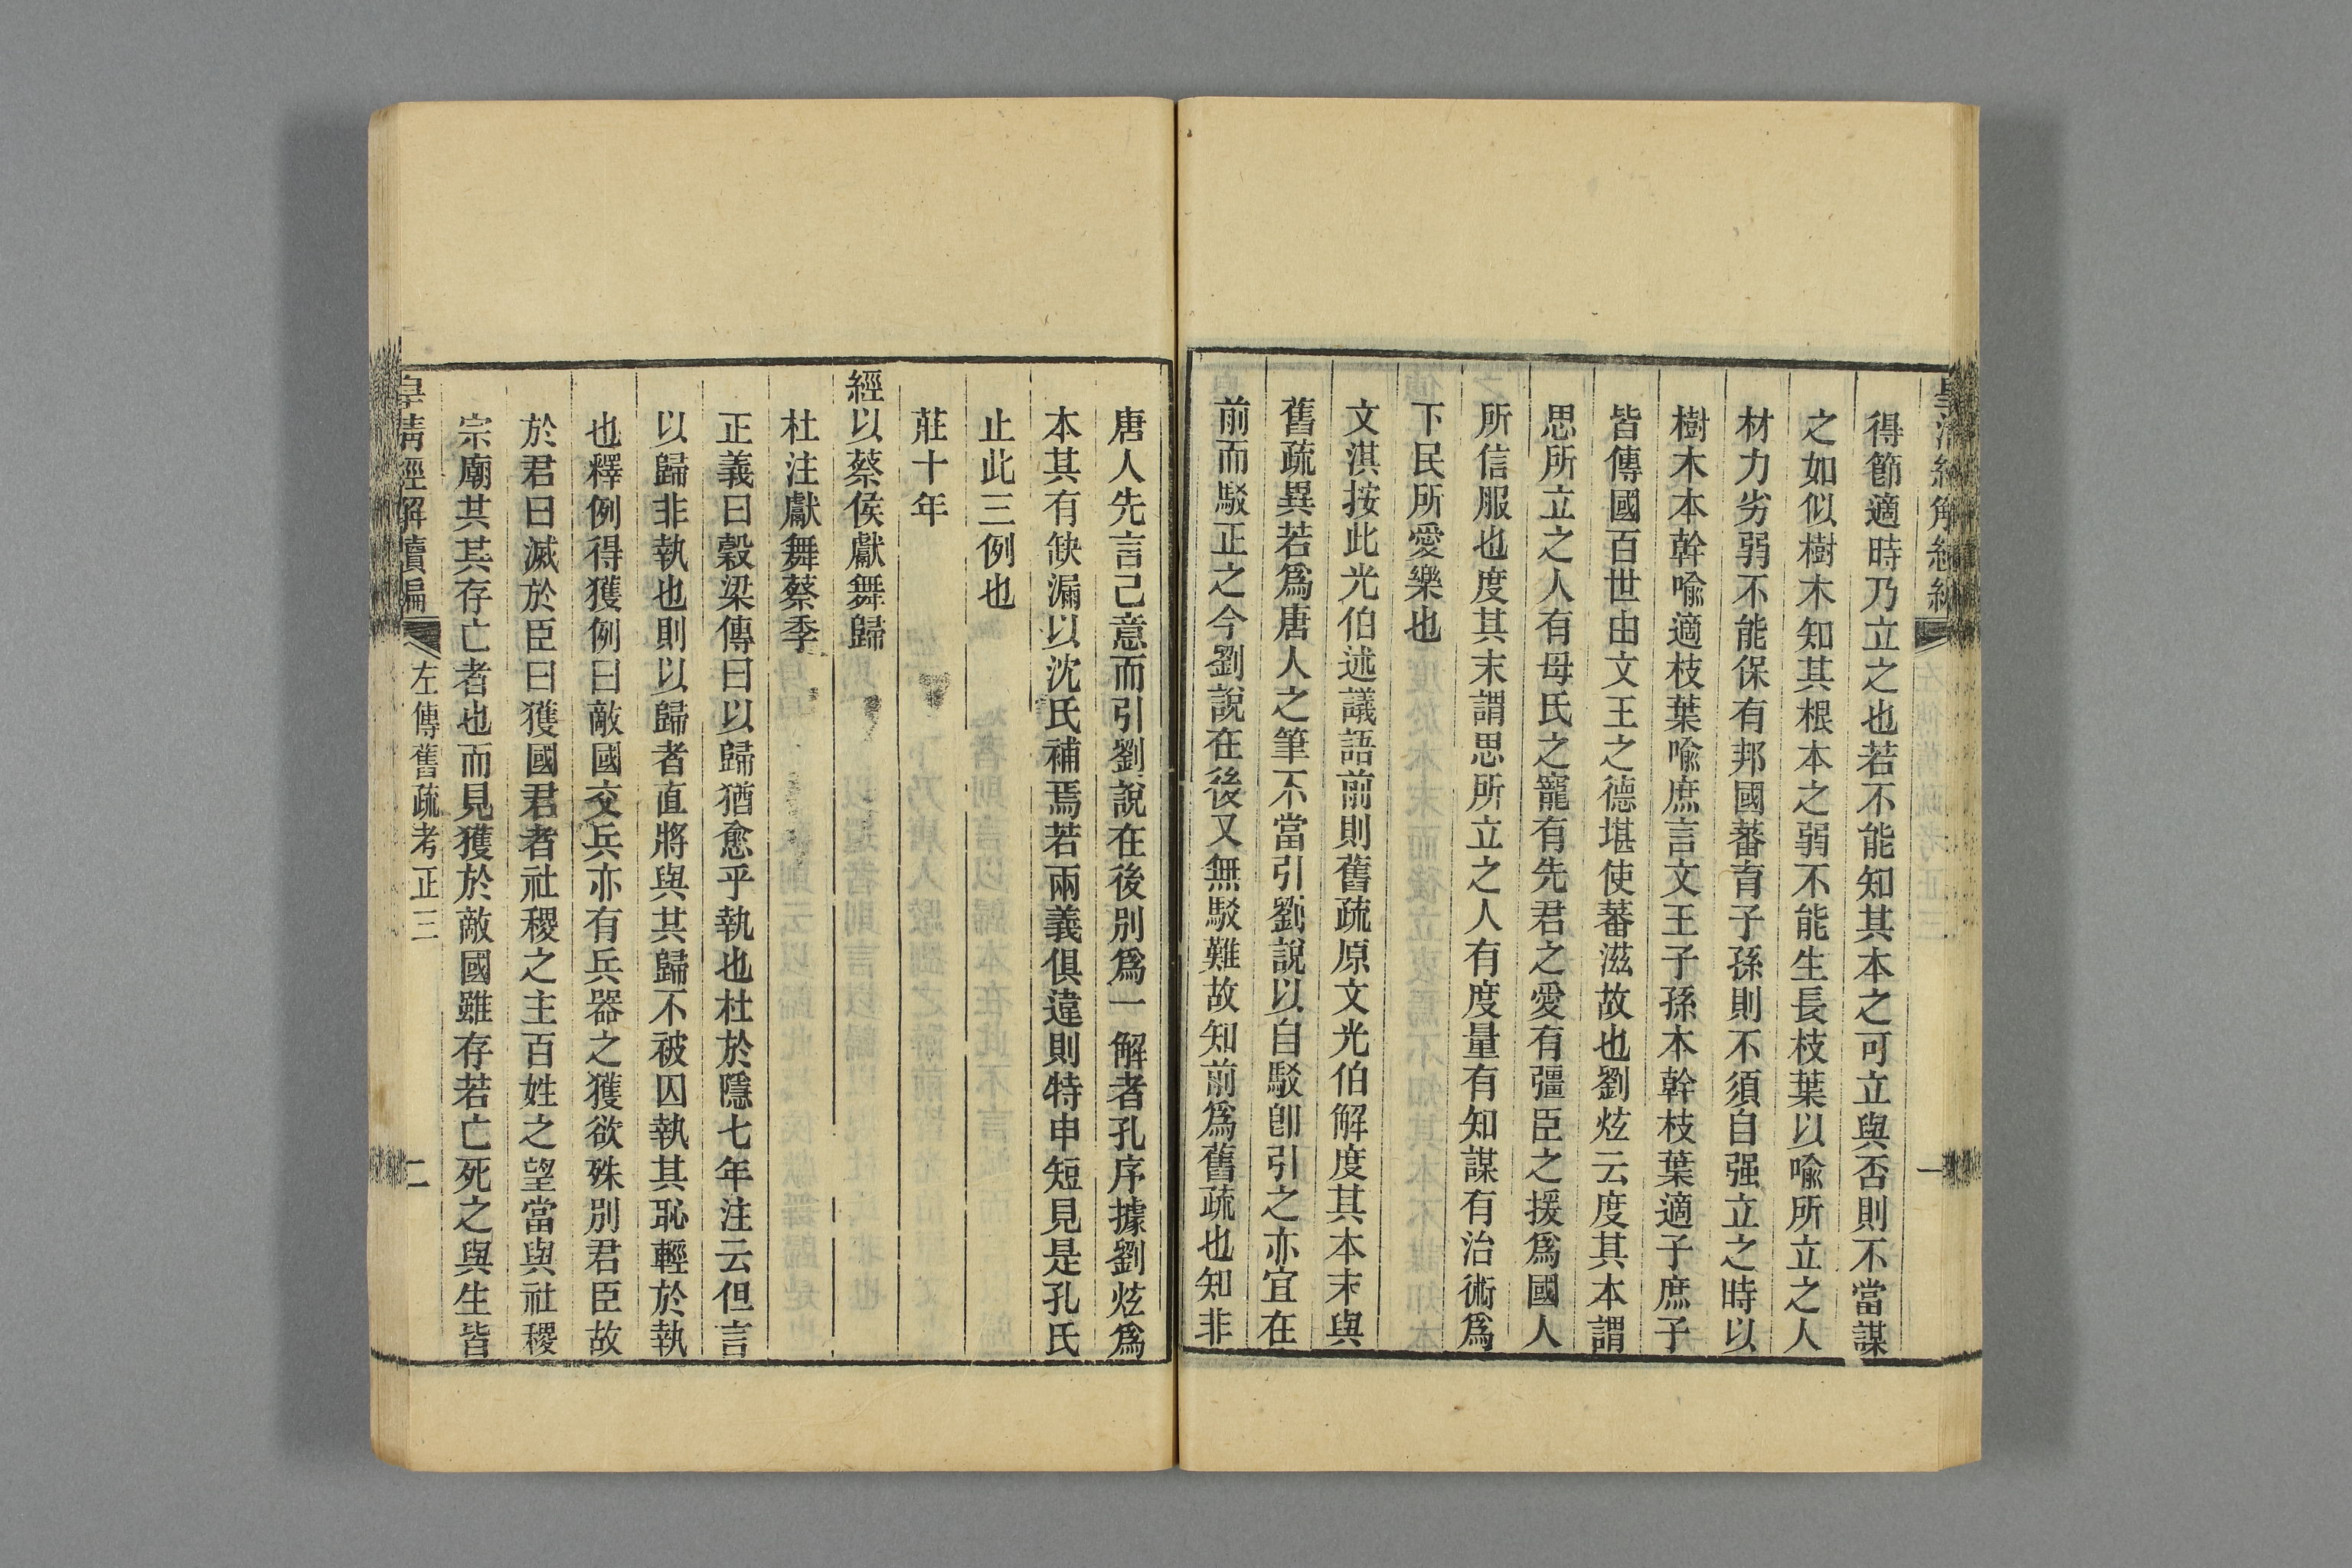 得節適時乃立之也若不能知其本之可立與否則不當謀
之如似樹木知其根本之弱不能生長枝葉以喩所立之人
材力劣弱不能保有邦國蕃育子孫則不須自强立之時以
樹木本幹喩適枝葉喩庶言文王子孫本幹枝葉適子庶子
皆傳國百世由文王之德堪使蕃滋故也劉炫云度其本謂
思所立之人有母氏之寵有先君之愛有彊臣之援爲國人
所信服也度其末謂思所立之人有度量有知謀有治術爲
下民所愛樂也
文淇按此光伯述議語前則舊疏原文光伯解度其本末與
舊疏異若爲唐人之筆不當引劉說以自駁卽引之亦宜在
前而駁正之今劉說在後又無駁難故知前爲舊疏也知非
唐人先言己意而引劉說在後別爲一解者孔序據劉炫爲
本其有缺漏以沈氏補焉若兩義俱違則特申短見是孔氏
止此三例也
莊十年
經以蔡侯獻舞歸
杜注獻舞蔡季
正義曰穀梁傳曰以歸猶愈乎執也杜於隱七年注云但言
以歸非執也則以歸者直將與其歸不被囚執其恥輕於執
也釋例得獲例曰敵國交兵亦有兵器之獲欲殊別君臣故
於君曰滅於臣曰獲國君者社稷之主百姓之望當與社稷
宗廟共其存亡者也而見獲於敵國雖存若亡死之與生皆
皇清經解續編 左傳舊疏考正三 二